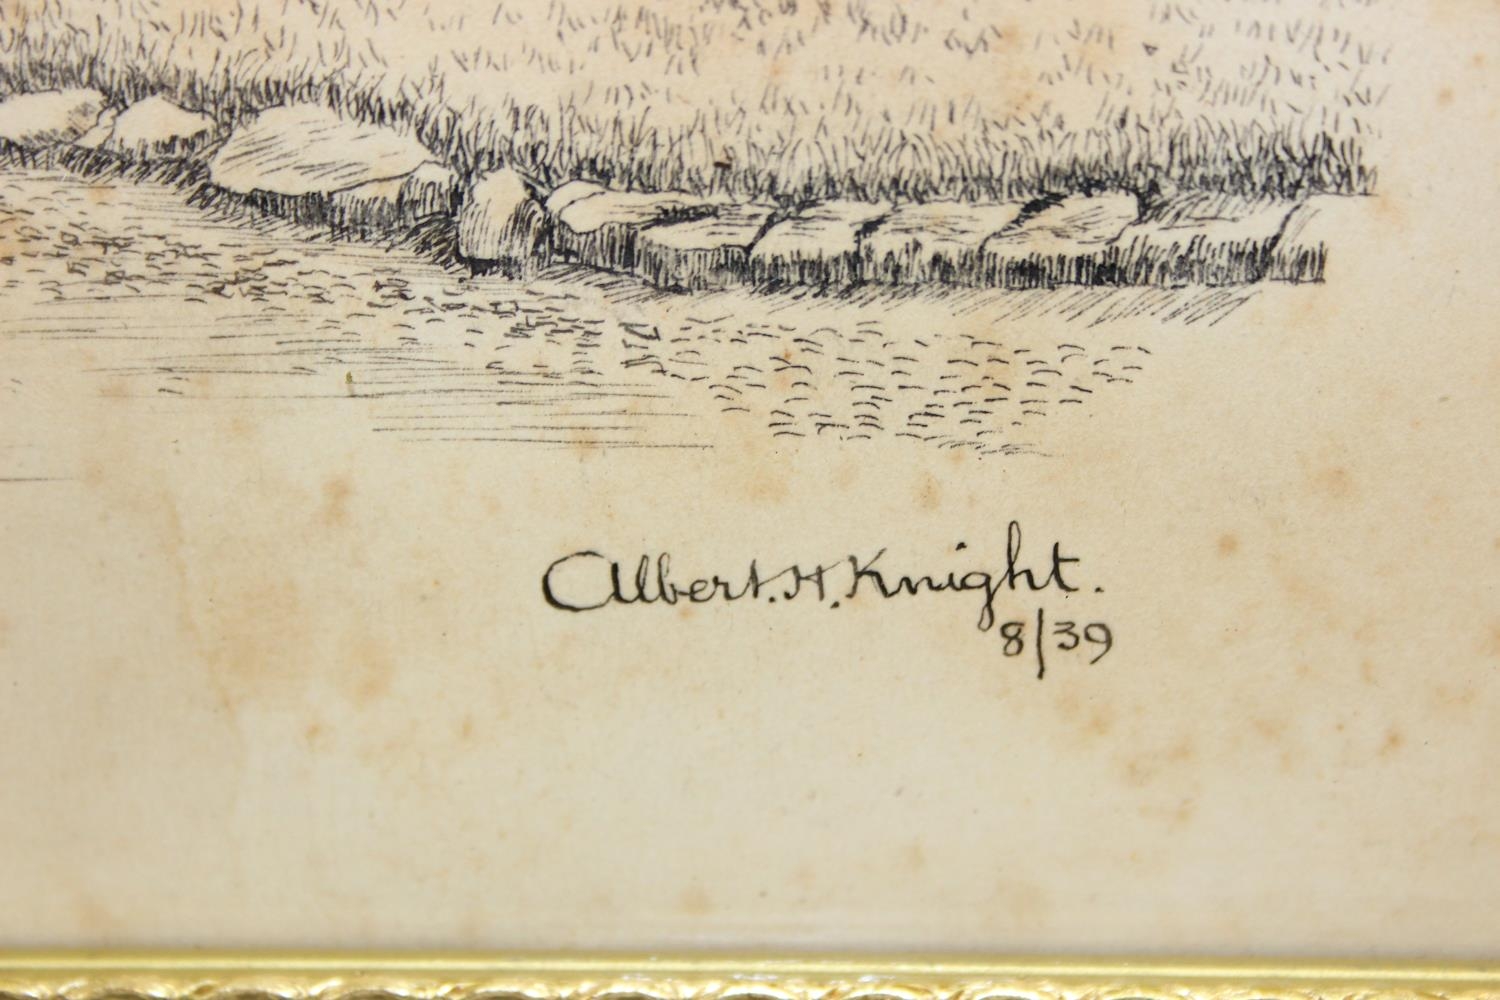 Albert.H.Knight.
8/39